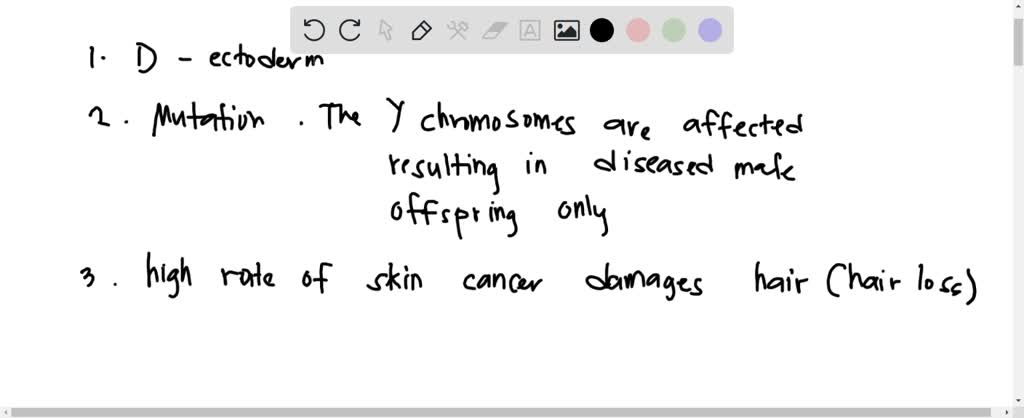 A
1. D - ectoderm
2. Mutation. The Y chromosomes are affected
resulting in diseased male
offspring only
3. high rate of skin cancer damages hair (hair loss)